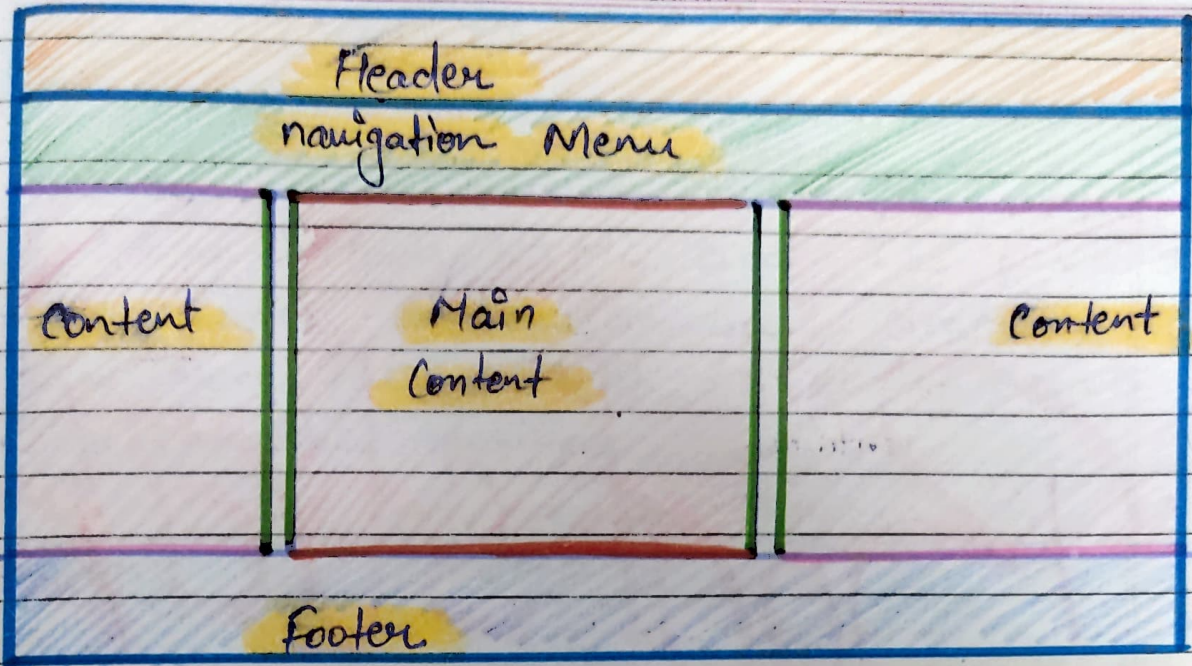 Header
navigation Menu
Content
Main
Content
Content
Footer